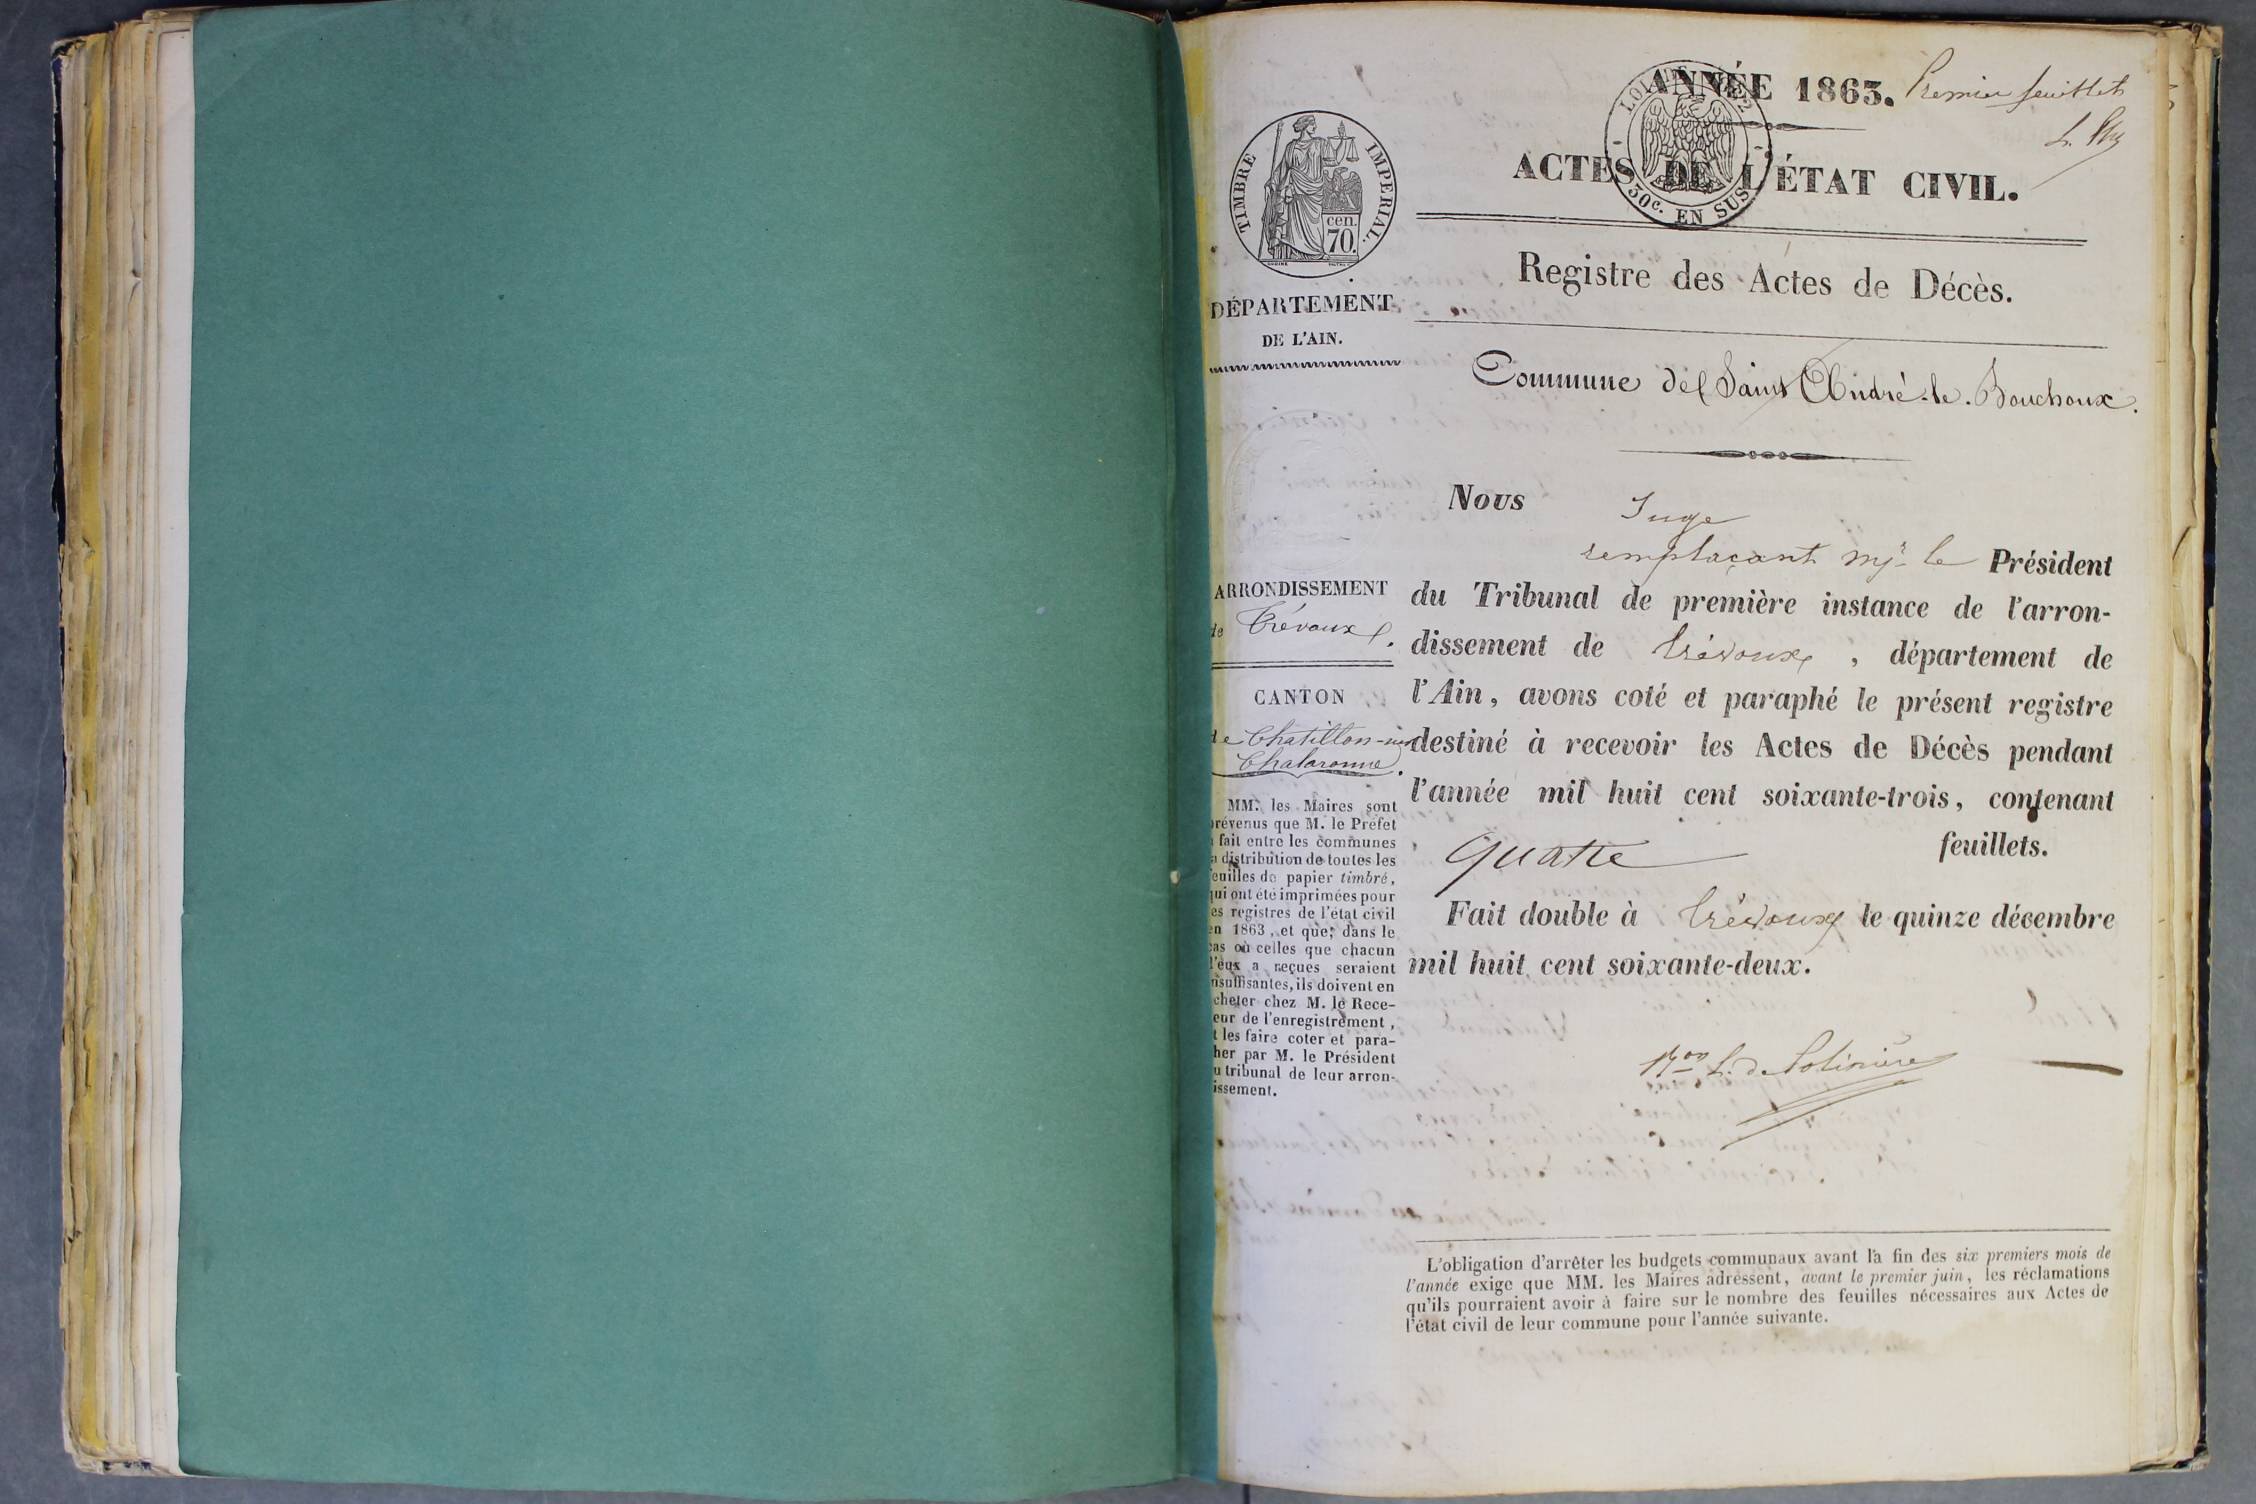 ANNÉE 1863. Premier feuillet
LOI DE 1862
30c. EN SUS
TIMBRE IMPERIAL.
cen.
70.
ACTES DE L'ÉTAT CIVIL.
Registre des Actes de Décès.
DÉPARTEMENT
DE L'AIN.
Commune de Saint André-le-Bouchoux.
Nous Juge
remplaçant Mr le Président
du Tribunal de première instance de l'arron-
dissement de Trévoux, département de
l'Ain, avons coté et paraphé le présent registre
destiné à recevoir les Actes de Décès pendant
l'année mil huit cent soixante-trois, contenant
quatre feuillets.
Fait double à Trévoux le quinze décembre
mil huit cent soixante-deux.
ARRONDISSEMENT
de Trévoux.
CANTON
de Chatillon-sur
Chalaronne.
MM. les Maires sont
prévenus que M. le Préfet
fait entre les communes
a distribution de toutes les
feuilles de papier timbré,
qui ont été imprimées pour
es registres de l'état civil
en 1863, et que, dans le
cas où celles que chacun
d'eux a reçues seraient
nsuffisantes, ils doivent en
cheter chez M. le Rece-
eur de l'enregistrement,
t les faire coter et para-
her par M. le Président
u tribunal de leur arron-
issement.
L'obligation d'arrêter les budgets communaux avant la fin des six premiers mois de
l'année exige que MM. les Maires adressent, avant le premier juin, les réclamations
qu'ils pourraient avoir à faire sur le nombre des feuilles nécessaires aux Actes de
l'état civil de leur commune pour l'année suivante.